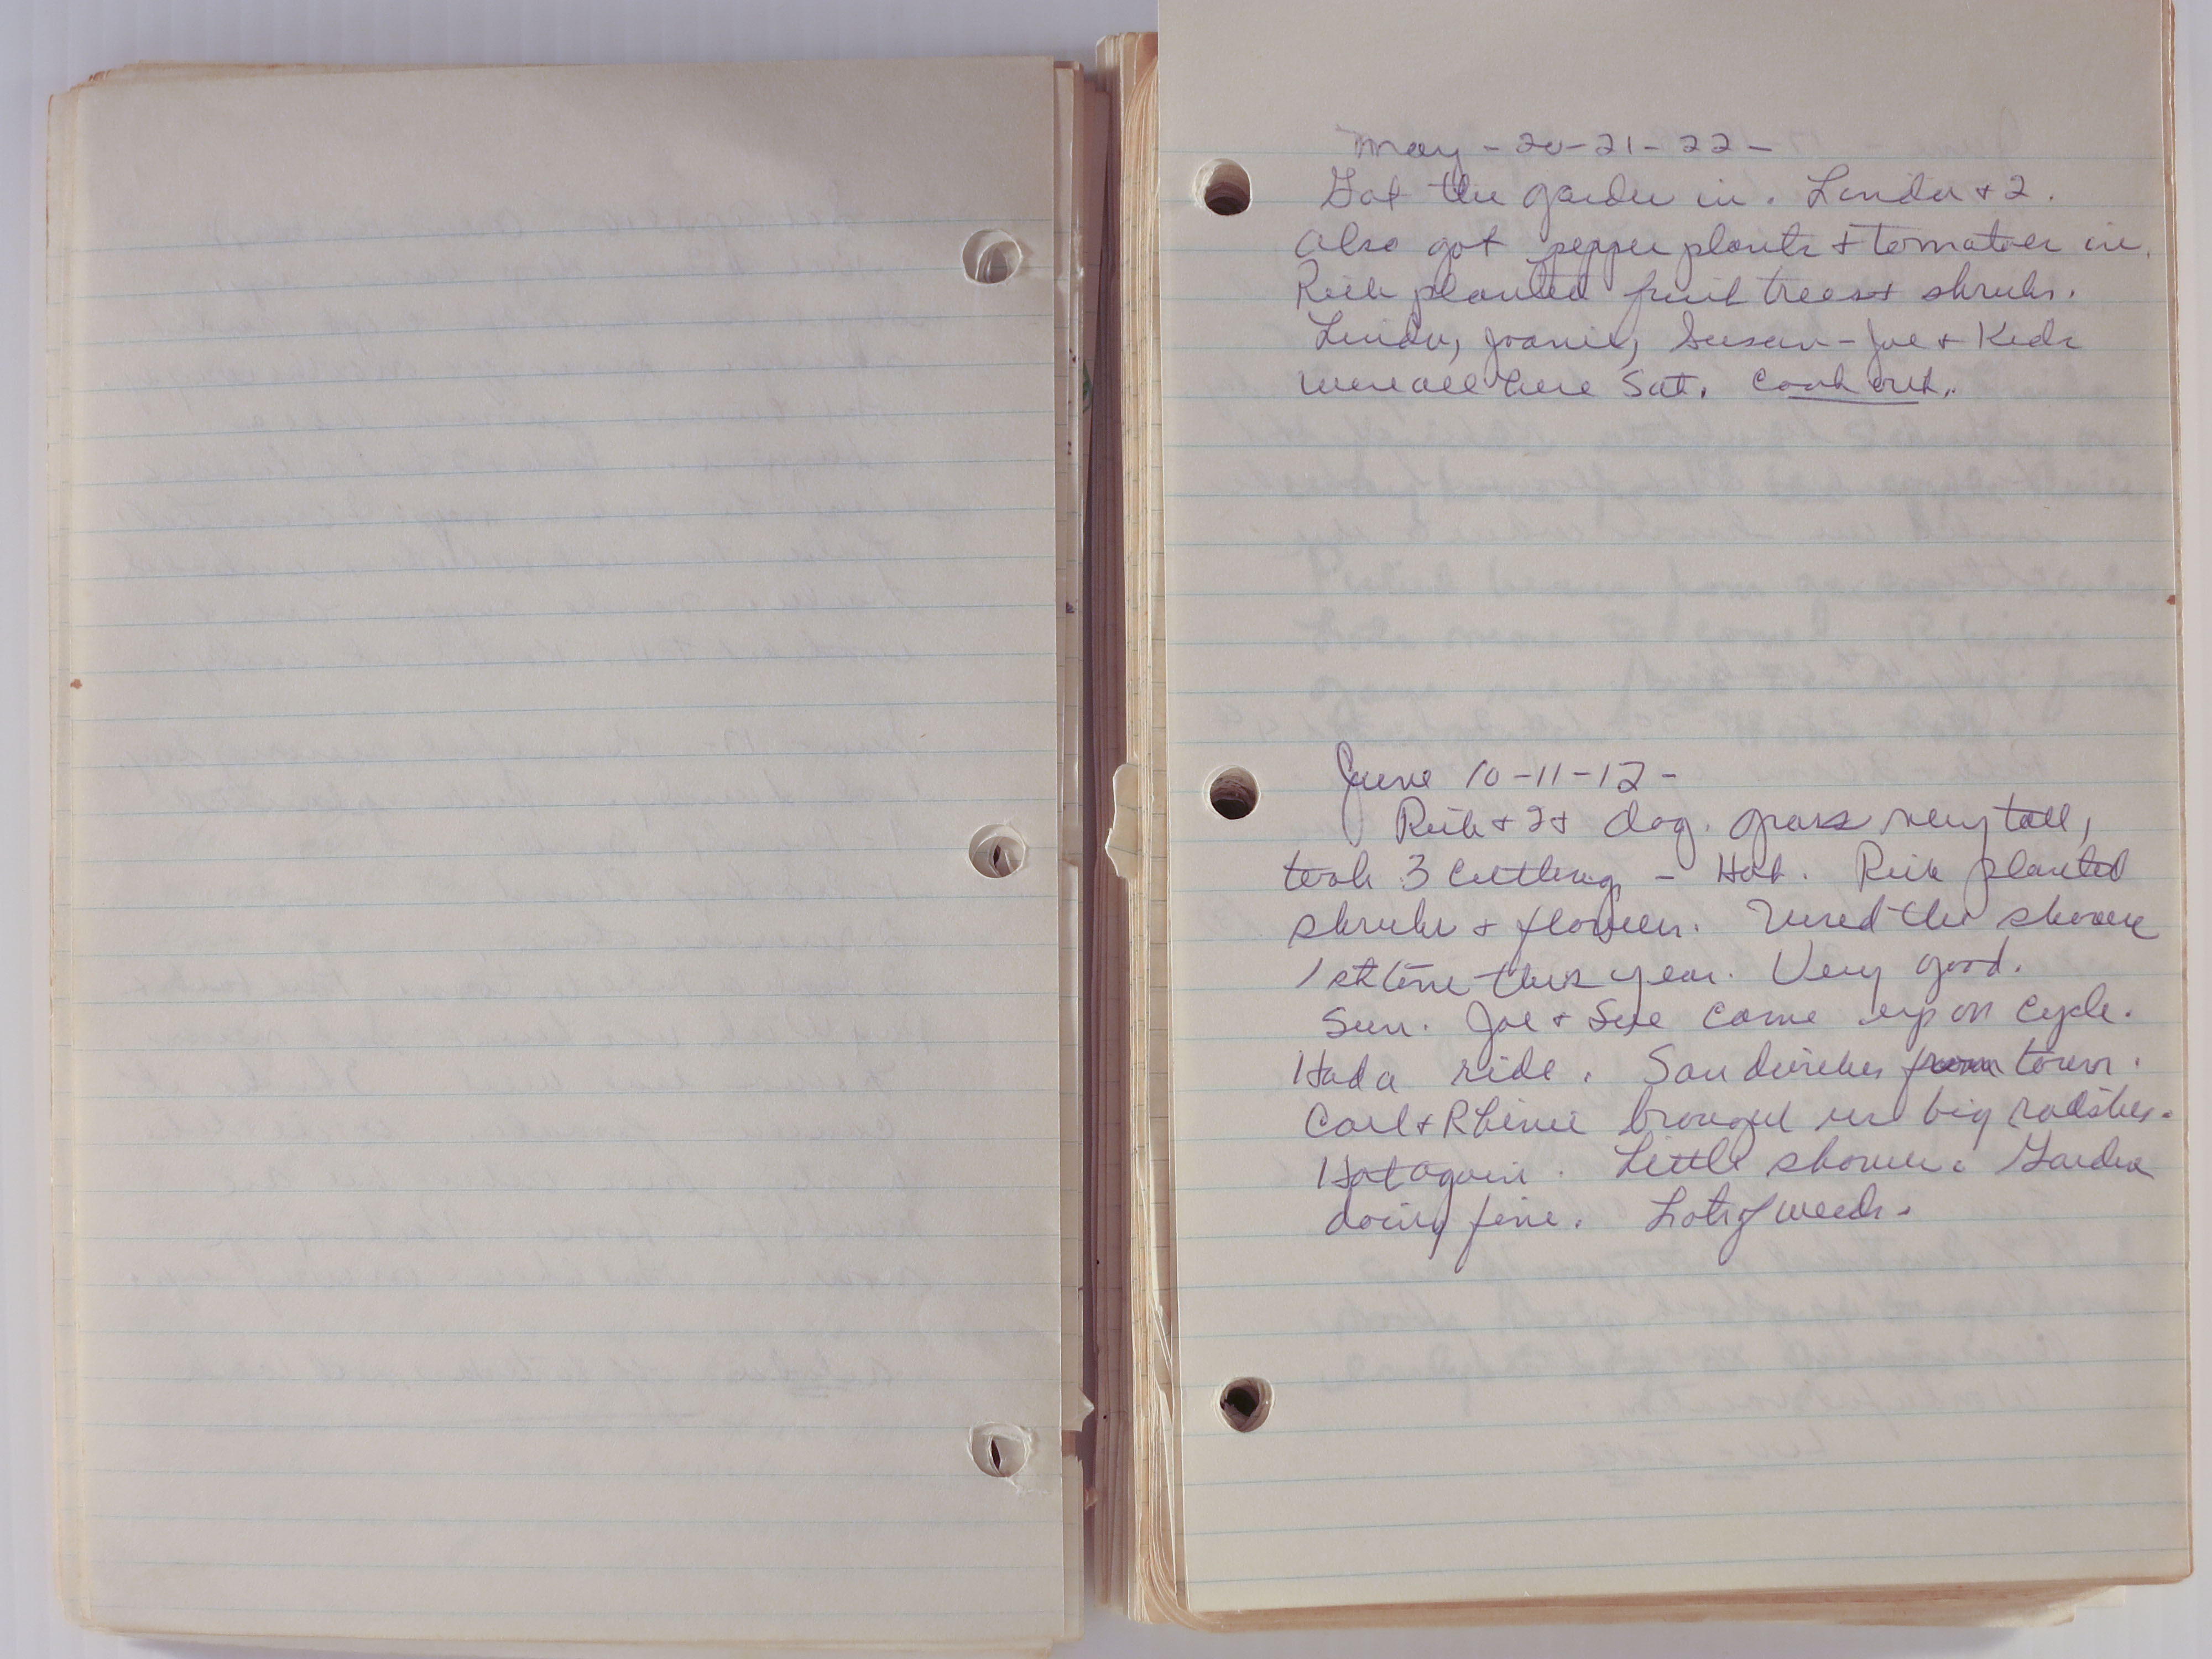 May - 20-21-22-
Got the garden in. Linda + 2.
Also got pepper plants + tomatoes in.
Rich planted fruit trees + shrubs.
Linda, Joanie, Susan - Joe + Kids
were all here Sat. Cook out.
June 10-11-12-
Rich + 2 + dog. grass very tall,
took 3 cuttings - Hot. Rich planted
shrubs + flowers. Used the shower
1st time this year. Very good.
Sun. Joe + Sue came up on cycle.
Had a ride. Sandwiches from town.
Carl + brought us big radishes.
Hot again. Little shower. Garden
doing fine. Lots of weeds.